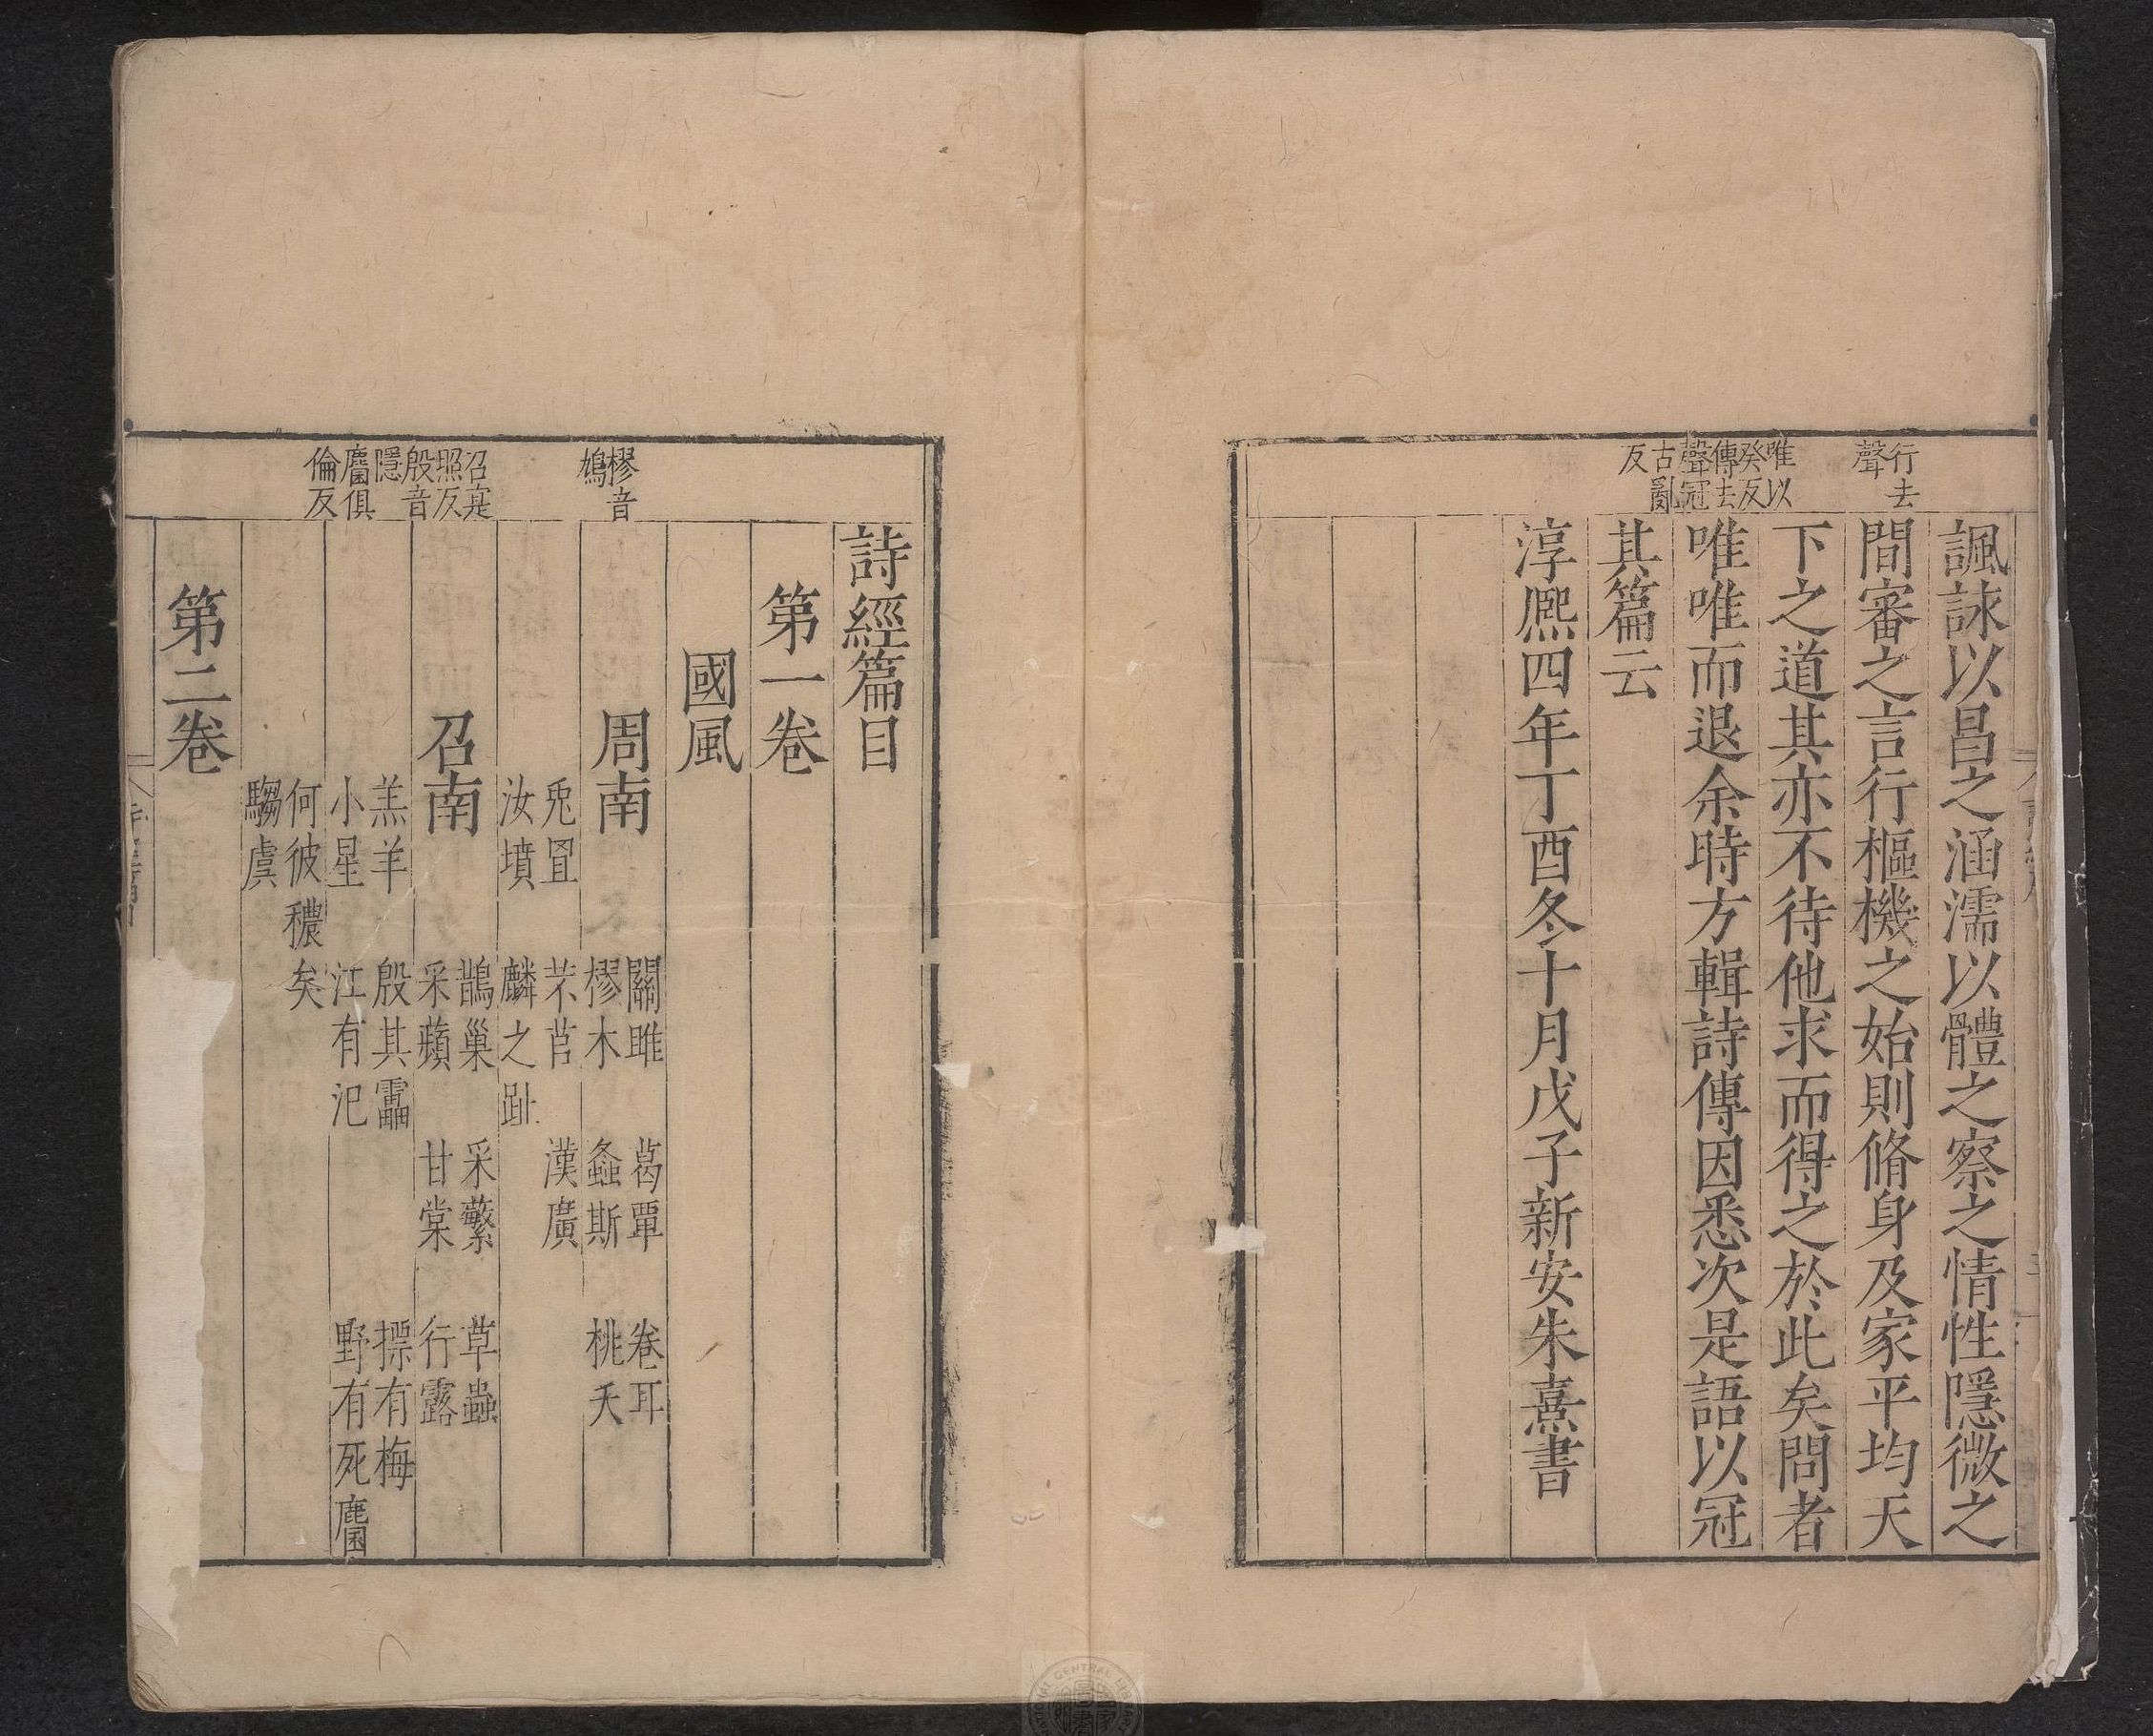 行去
聲
唯以
癸反
傳去
聲冠
古亂
反
諷詠以昌之涵濡以體之察之情性隱微之
間審之言行樞機之始則脩身及家平均天
下之道其亦不待他求而得之於此矣問者
唯唯而退余時方輯詩傳因悉次是語以冠
其篇云
淳熈四年丁酉冬十月戊子新安朱熹書
樛音
鳩
召寔
照反
殷音
隱
麕俱
倫反
詩經篇目
第一卷
國風
周南
關雎 葛覃 卷耳
樛木 螽斯 桃夭
兎罝 芣苢 漢廣
汝墳 麟之趾
召南
鵲巢 采蘩 草蟲
采蘋 甘棠 行露
羔羊 殷其靁 摽有梅
小星 江有汜 野有死麕
何彼穠矣
騶虞
第二卷